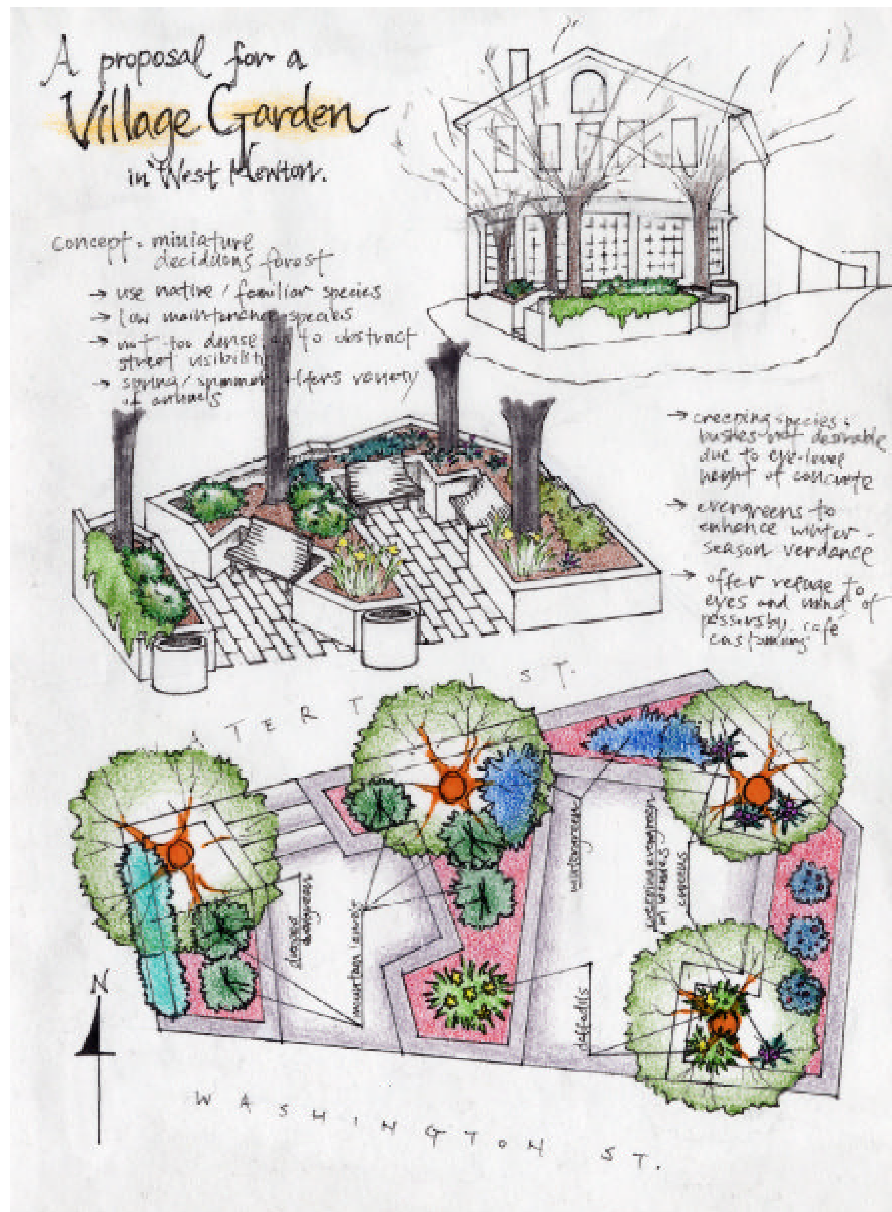 A proposal for a
Village Garden
in West Newton.
concept: miniature
deciduous forest
→ use native / familiar species
→ low maintenance species
→ not too dense to obstract
street visibility
→ spring / summer offers variety
of annuals
→ creeping species:
bushes not desirable
due to eye-level
height of concrete
→ evergreens to
enhance winter-
season verdance
→ offer refuge to
eyes and mind of
passersby, café
ATER T ST.
wintergreen
creeping evergreen
crocus
mountain laurel
daffodils
N
WASHINGTON ST.